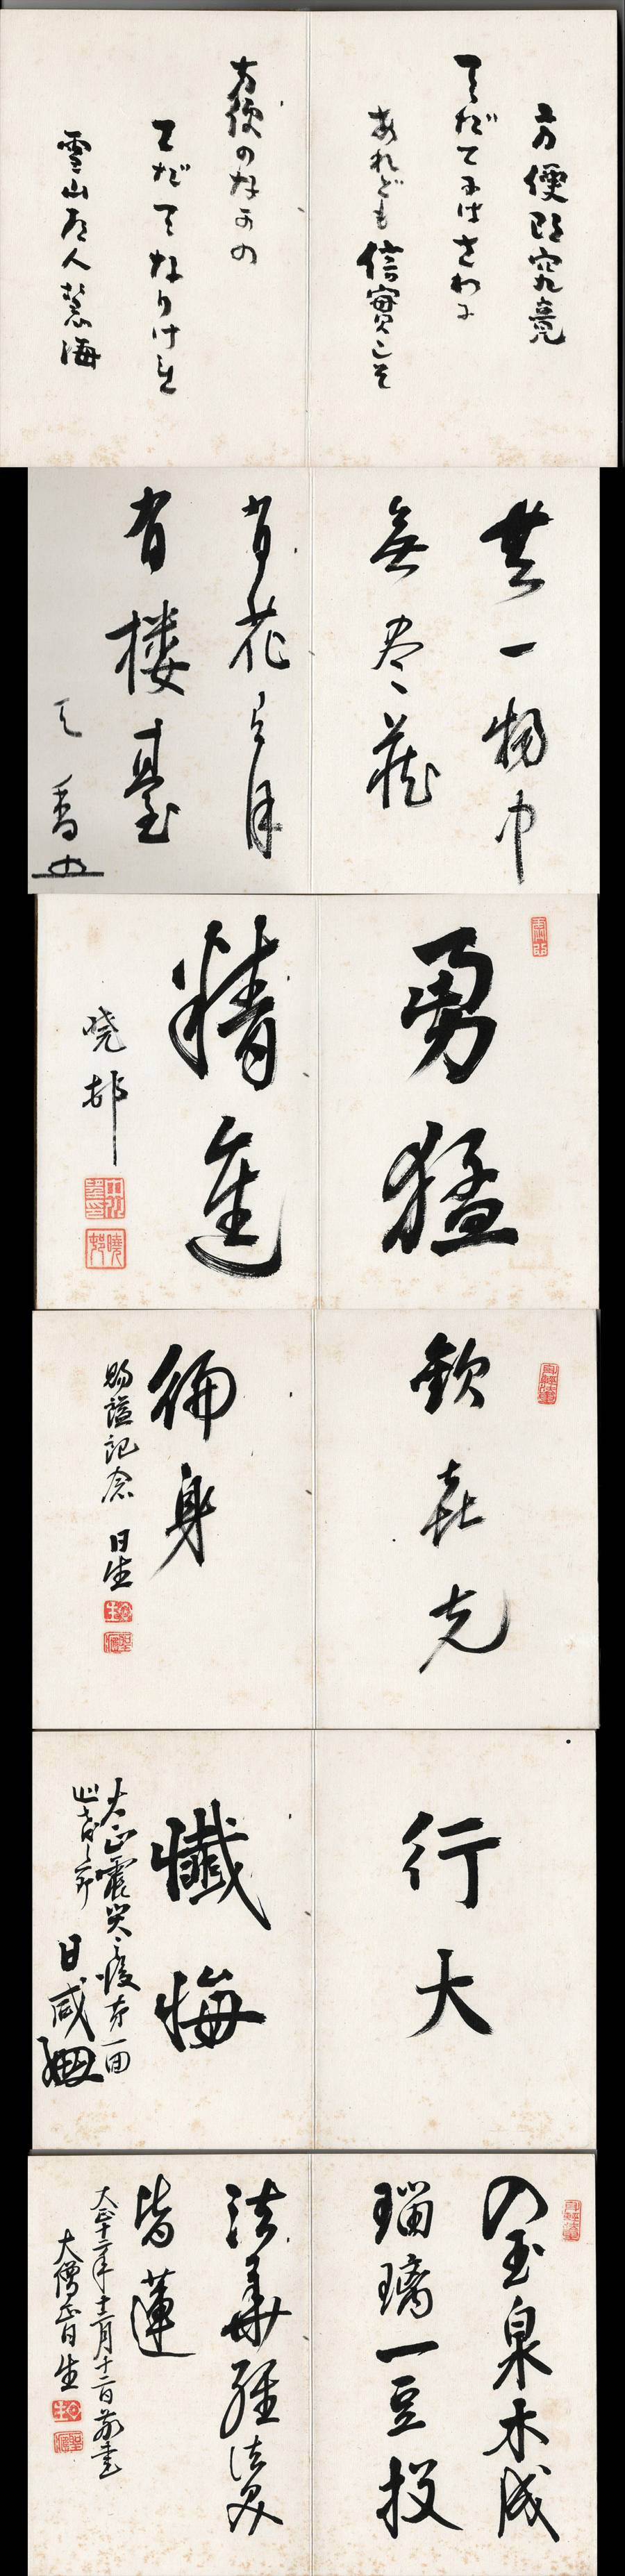 方便即究竟
へだてにはさわに
あれども信實こそ
方便のなかの
てだてなりけれ
雪山道人慧海
無一物中
無尽蔵
有花有月
有楼臺
天香
勇猛
精進
暁邨
歓喜充
徧身
賜謚記念 日生
行大
懺悔
大正震災後第一回
日咸
玉泉木成
瑠璃一豆投
法華経法界
皆蓮
大正十二年十二月十二日
大僧正日生